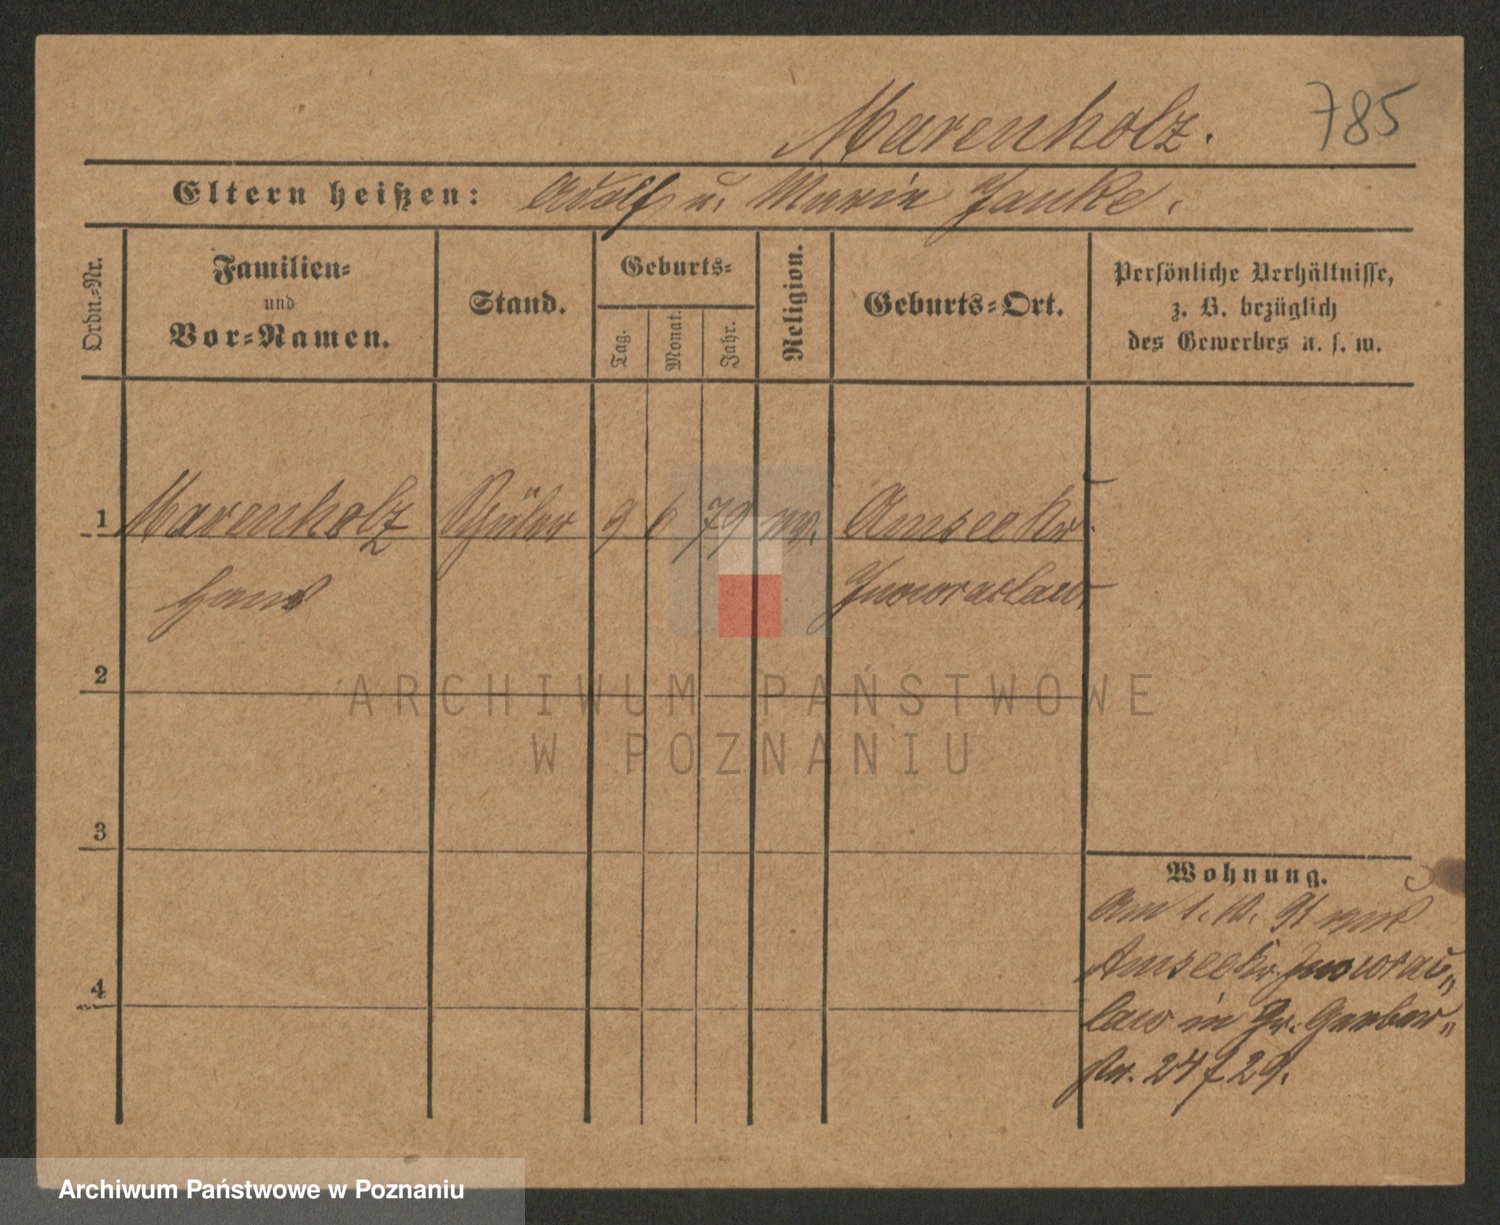 Marenholz. 785
Eltern heißen: Adolf u. Marie Janke.
Ordn.-Nr.
Familien-
und
Vor-Namen.
Stand.
Geburts-
Tag.
Monat.
Jahr.
Religion.
Geburts-Ort.
Persönliche Verhältnisse,
z. B. bezüglich
des Gewerbes u. s. w.
1 Marenholz Schüler 9 6 79 ev. Amsee Kr.
Hans Inowraclaw
2
ARCHIWUM PAŃSTWOWE
W POZNANIU
3
Wohnung.
Am 1. 10. 91 aus
Amsee Kr. Inowrac„
law in Gr. Gerber„
str. 24 f 29.
4
Archiwum Państwowe w Poznaniu